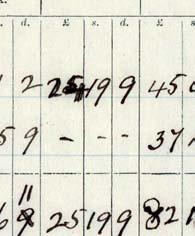 d. £ s. d. £
2 25 19 9 45
5 9 - - - 37
9 25 19 9 82